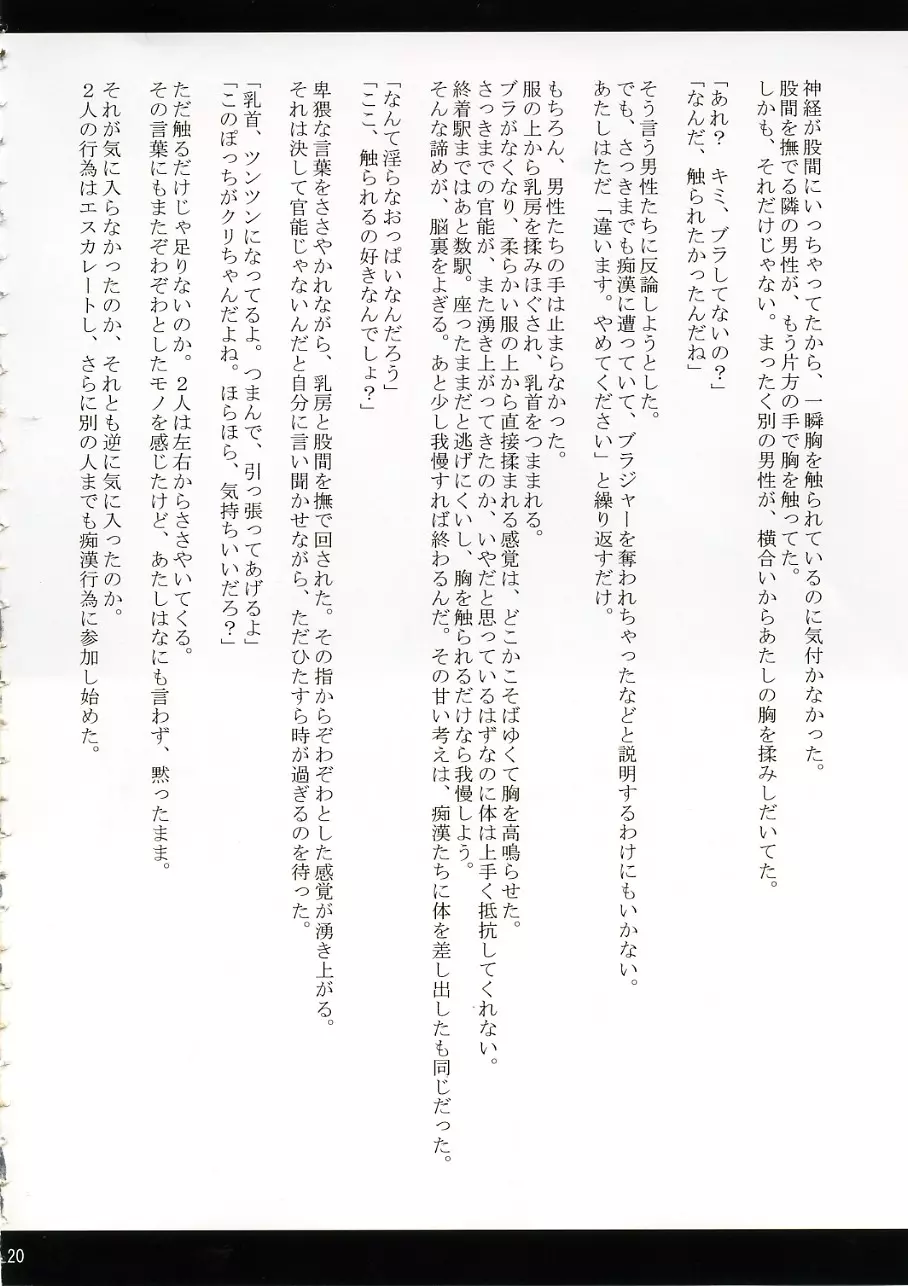 神経が股間にいっちゃってたから、一瞬胸を触られているのに気付かなかった。
股間を撫でる隣の男性が、もう片方の手で胸を触ってた。
しかも、それだけじゃない。まったく別の男性が、横合いからあたしの胸を揉みしだいてた。
「あれ？　キミ、ブラしてないの？」
「なんだ、触られたかったんだね」
そう言う男性たちに反論しようとした。
でも、さっきまでも痴漢に遭っていて、ブラジャーを奪われちゃったなどと説明するわけにもいかない。
あたしはただ「違います。やめてください」と繰り返すだけ。
もちろん、男性たちの手は止まらなかった。
服の上から乳房を揉みほぐされ、乳首をつままれる。
ブラがなくなり、柔らかい服の上から直接揉まれる感覚は、どこかこそばゆくて胸を高鳴らせた。
さっきまでの官能が、また湧き上がってきたのか、いやだと思っているはずなのに体は上手く抵抗してくれない。
終着駅まではあと数駅。座ったままだと逃げにくいし、胸を触られるだけなら我慢しよう。
そんな諦めが、脳裏をよぎる。あと少し我慢すれば終わるんだ。その甘い考えは、痴漢たちに体を差し出したも同じだった。
「なんて淫らなおっぱいなんだろう」
「ここ、触られるの好きなんでしょ？」
卑猥な言葉をささやかれながら、乳房と股間を撫で回された。その指からぞわぞわとした感覚が湧き上がる。
それは決して官能じゃないんだと自分に言い聞かせながら、ただひたすら時が過ぎるのを待った。
「乳首、ツンツンになってるよ。つまんで、引っ張ってあげるよ」
「このぽっちがクリちゃんだよね。ほらほら、気持ちいいだろ？」
ただ触るだけじゃ足りないのか。２人は左右からささやいてくる。
その言葉にもまたぞわぞわとしたモノを感じたけど、あたしはなにも言わず、黙ったまま。
それが気に入らなかったのか、それとも逆に気に入ったのか。
２人の行為はエスカレートし、さらに別の人までも痴漢行為に参加し始めた。
20